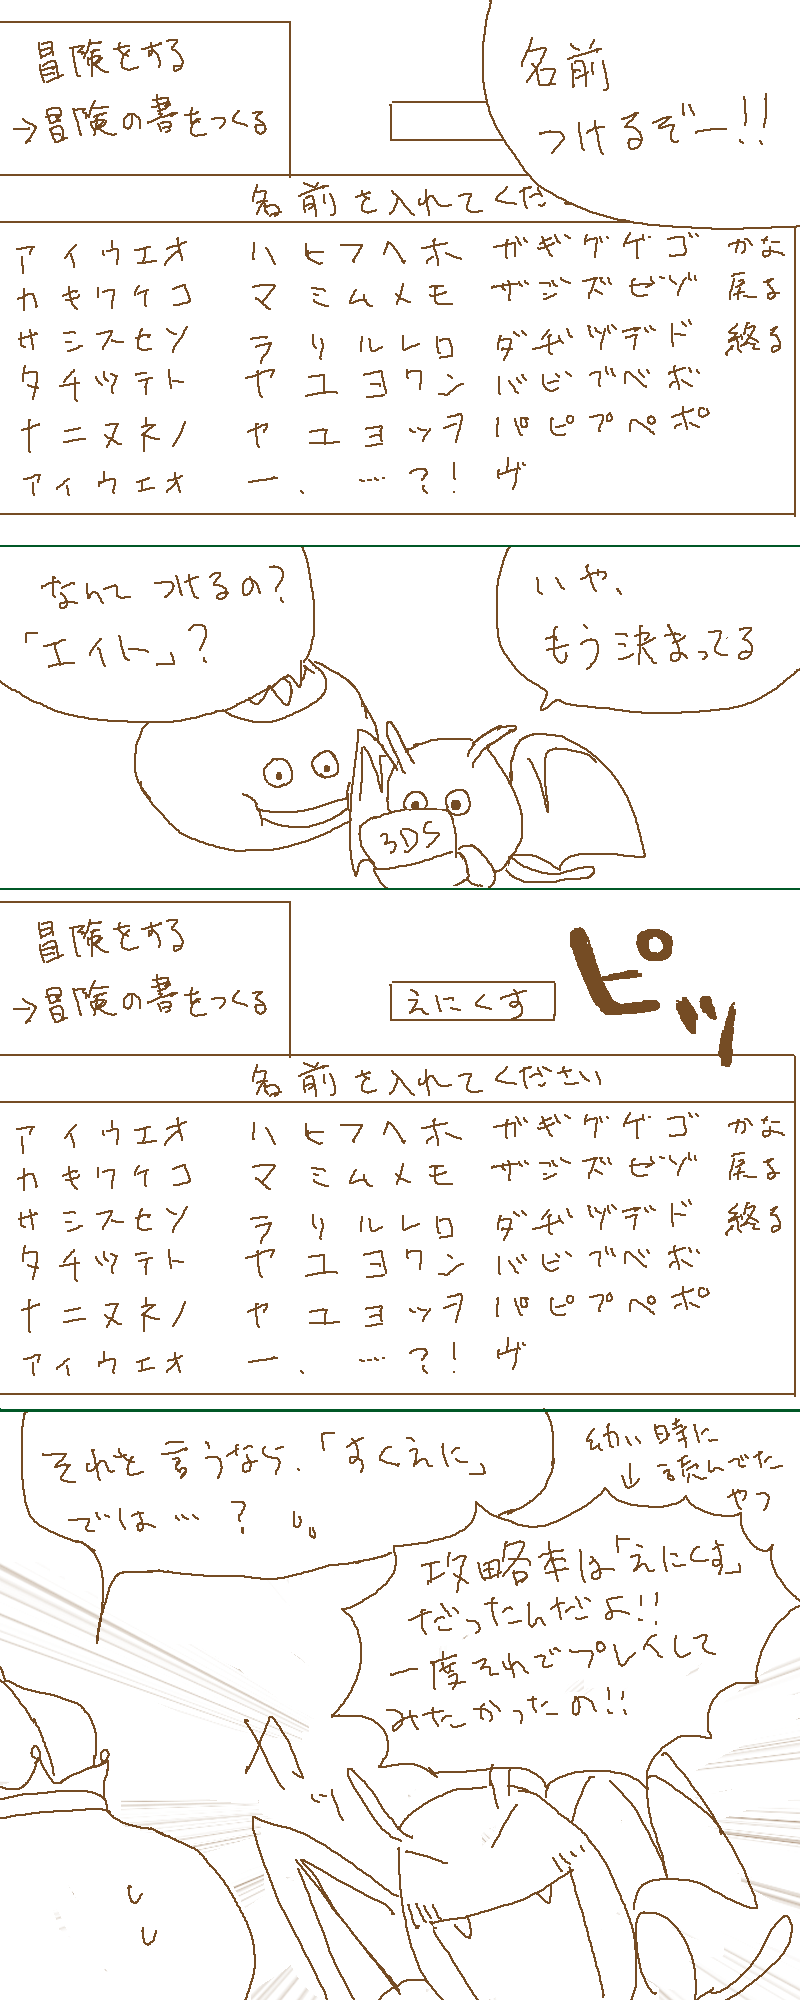 冒険をする
→冒険の書をつくる
名前
つけるぞー!!
名前を入れてくださ
アイウエオ ハヒフヘホ ガギグゲゴ かな
カキクケコ マミムメモ ザジズゼゾ 戻る
サシスセソ ラリルレロ ダヂヅデド 終る
タチツテト ヤユヨワン バビブベボ
ナニヌネノ ャュョッヲ パピプペポ
ァィゥェォ ー、…?! ヴ
なんてつけるの?
「エイト」?
いや、
もう決まってる
3DS
冒険をする
→冒険の書をつくる
えにくす
ピッ
名前を入れてください
アイウエオ ハヒフヘホ ガギグゲゴ かな
カキクケコ マミムメモ ザジズゼゾ 戻る
サシスセソ ラリルレロ ダヂヅデド 終る
タチツテト ヤユヨワン バビブベボ
ナニヌネノ ャュョッヲ パピプペポ
ァィゥェォ ー、…?! ヴ
それを言うなら、「すくえに」
では…?
幼い時に
↓読んでた
やつ
攻略本は「えにくす」
だったんだよ!!
一度それでプレイして
みたかったの!!